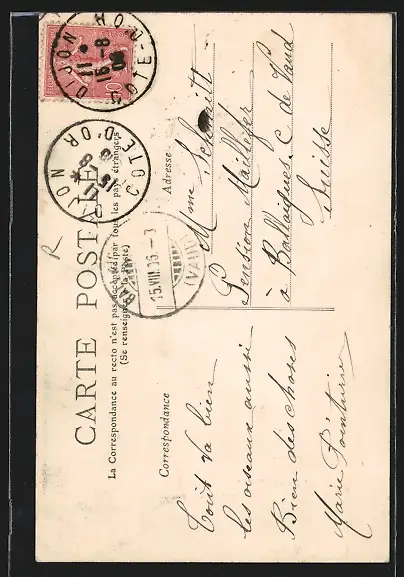 CARTE POSTALE
La Correspondance au recto n'est pas acceptée par tous les pays étrangers
(Se renseigner à la Poste)
Correspondance
Adresse
Tout va bien
les oiseaux aussi
Bien des choses
Marie
Mme Schmitt
Pension Maillefer
à Ballaigues. C. de Vaud
Suisse
DIJON
COTE-D'OR
COTE D'OR
15.VIII.06.-3
(VAUD)
R